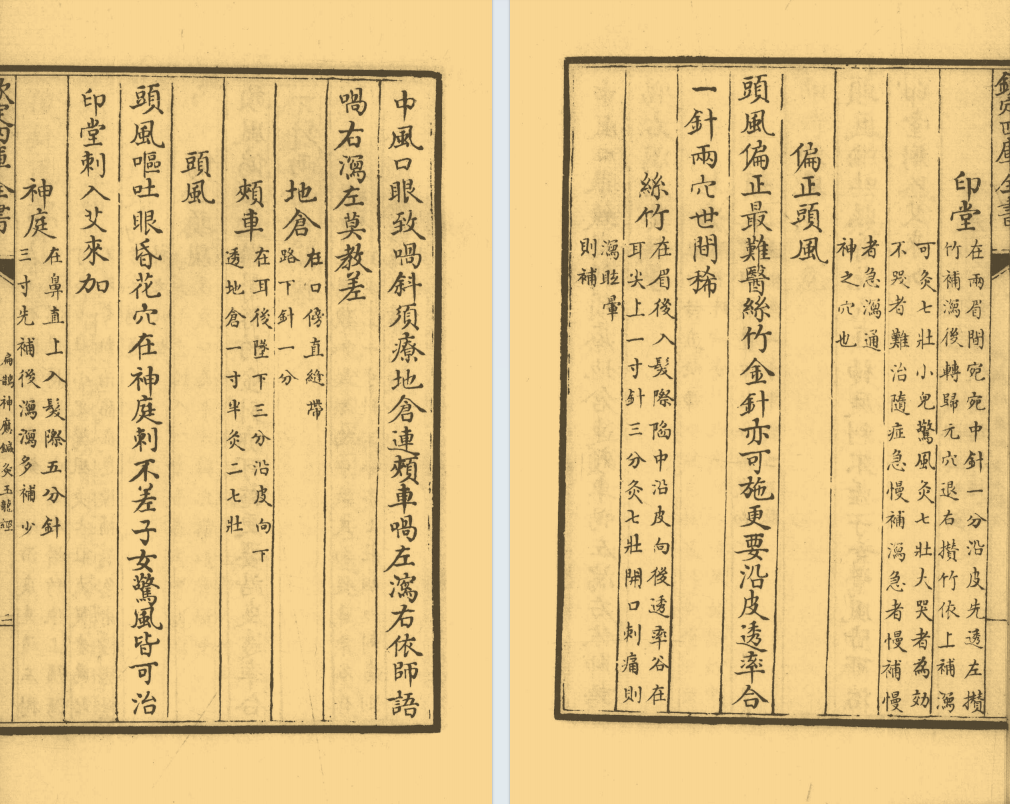 中風口眼致喎斜須療地倉連頰車喎左瀉右依師語
喎右瀉左莫教差
地倉
在口傍直縫帶
路下針一分
頰車
在耳後墜下三分沿皮向下
透地倉一寸半灸二七壯
頭風
頭風嘔吐眼昏花穴在神庭刺不差子女驚風皆可治
印堂刺入艾來加
神庭
在鼻直上髮際五分針
三寸先補後瀉瀉多補少
欽定四庫全書
扁鵲神應鍼灸玉龍經
三
欽定四庫全書
印堂
在兩眉間宛宛中針一分沿皮先透左攢
竹補瀉後轉歸元穴退右攢竹依上補瀉
可灸七壯小兒驚風灸七壯大哭者為効
不哭者難治隨症急慢補瀉急者慢補慢
者急瀉通
神之穴也
偏正頭風
頭風偏正最難醫絲竹金針亦可施更要沿皮透率谷
一針兩穴世間稀
絲竹
在眉後入髮際陷中沿皮向後透率谷在
耳尖上一寸針三分灸七壯開口刺痛則
瀉眩暈
則補